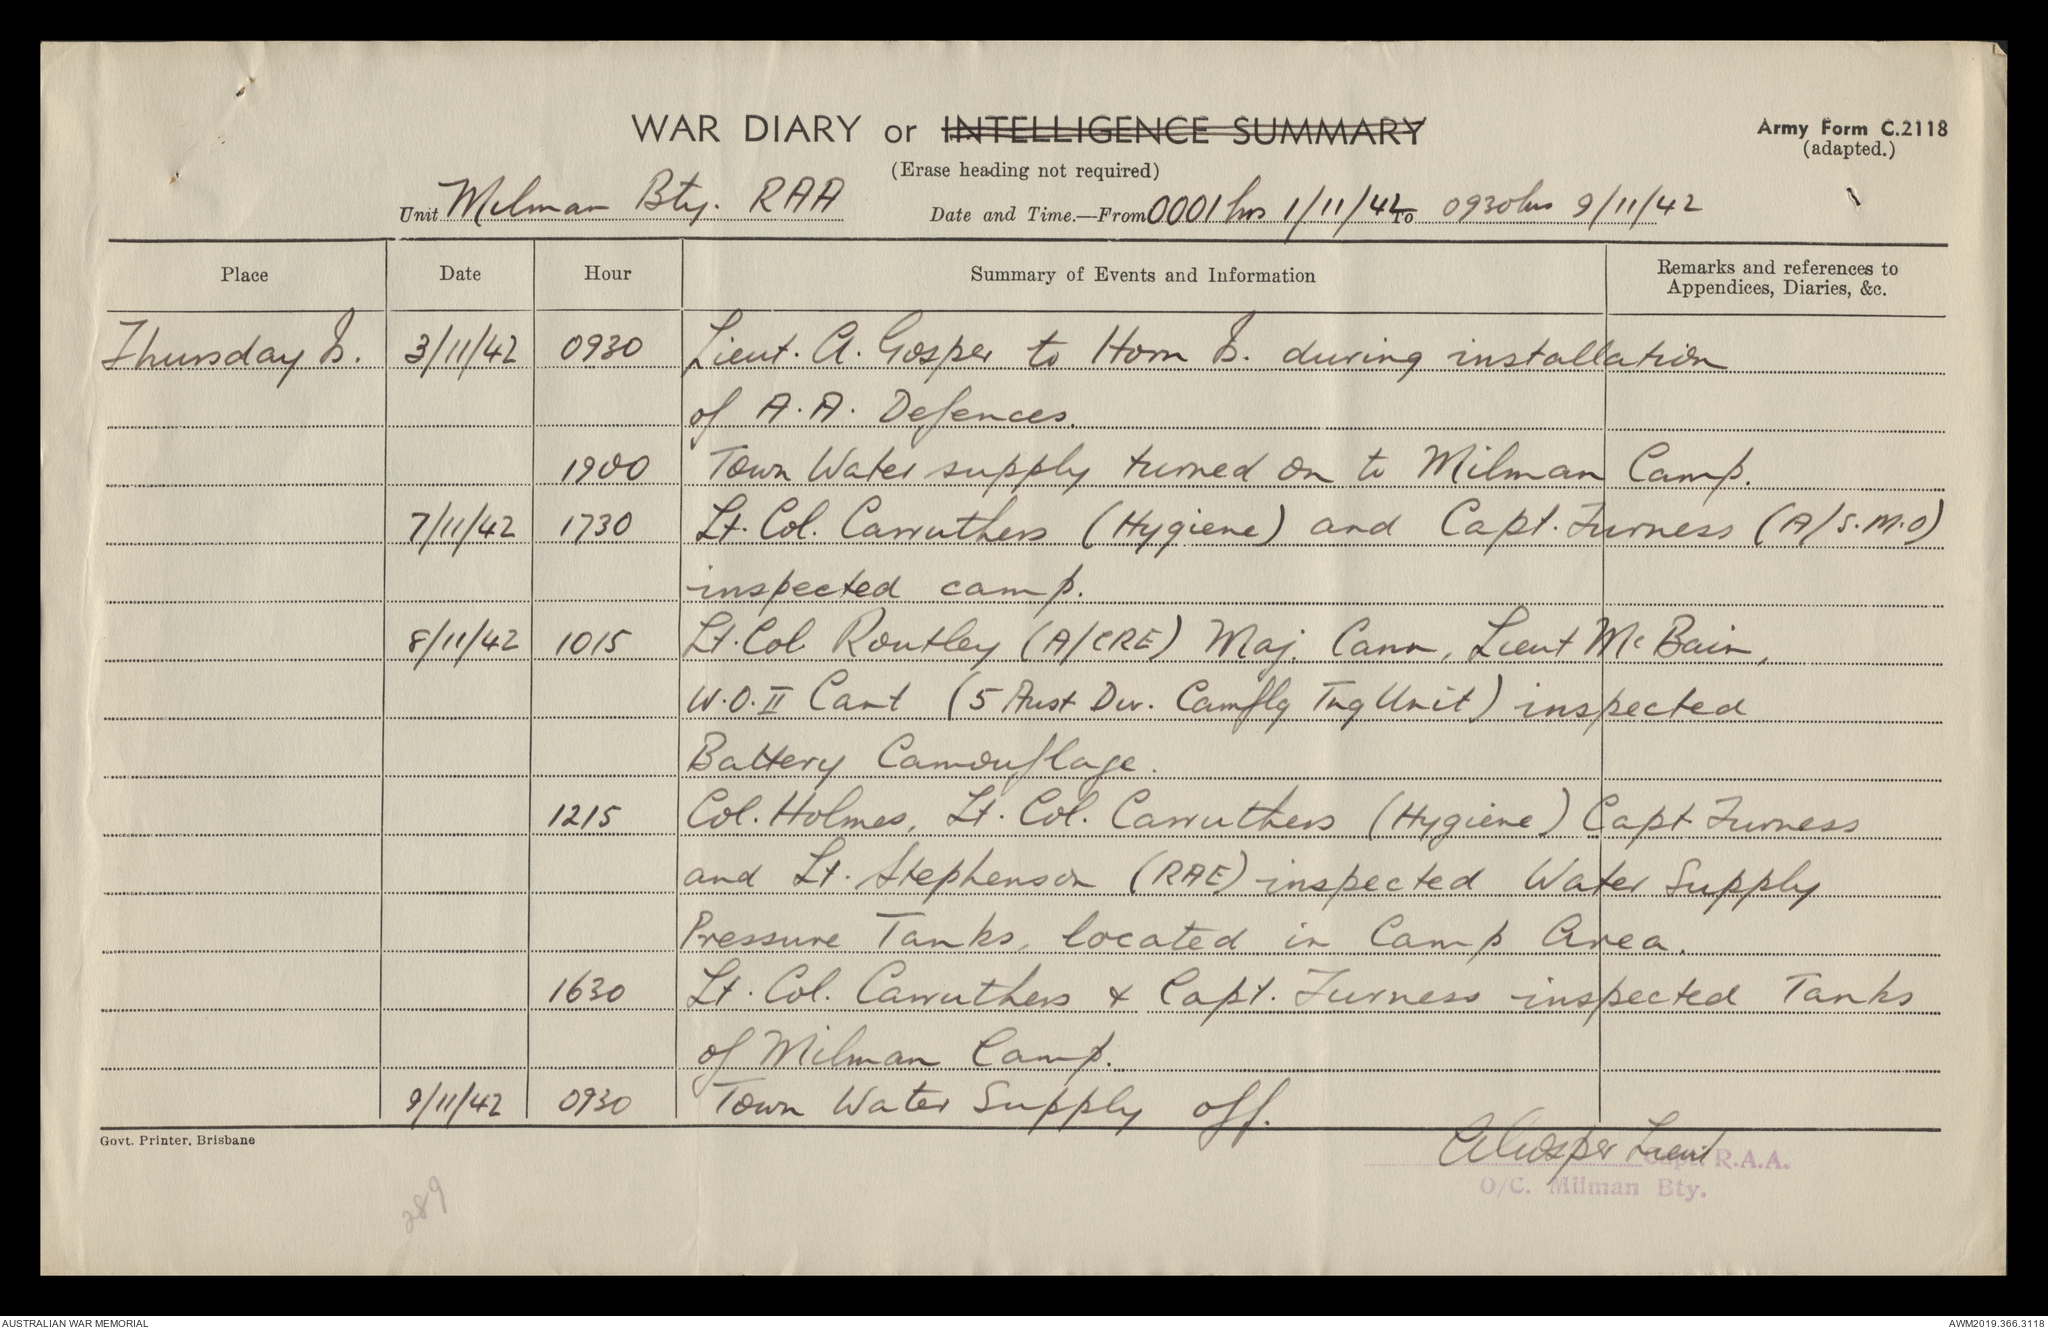 WAR DIARY or INTELLIGENCE SUMMARY
(Erase heading not required)
Army Form C.2118
(adapted.)
Unit Milman Bty. RAA Date and Time.—From 0001 hrs 1/11/42 To 0930 hrs 9/11/42
Place Date Hour Summary of Events and Information Remarks and references to
Appendices, Diaries, &c.
Thursday Is. 3/11/42 0930 Lieut. A. Gosper to Horn Is. during installation
of A.A. Defences.
1900 Town Water supply turned on to Milman Camp.
7/11/42 1730 Lt. Col. Carruthers (Hygiene) and Capt. Furness (A/S.M.O)
inspected camp.
8/11/42 1015 Lt. Col Routley (A/CRE) Maj. Cann, Lieut McBain,
W.O.II Cant (5 Aust Div. Camflg Tng Unit) inspected
Battery Camouflage.
1215 Col. Holmes, Lt. Col. Carruthers (Hygiene) Capt Furness
and Lt. Stephenson (RAE) inspected Water Supply
Pressure Tanks, located in Camp Area.
1630 Lt. Col. Carruthers & Capt. Furness inspected Tanks
of Milman Camp.
9/11/42 0930 Town Water Supply off.
Govt. Printer, Brisbane
AGosper Lieut
Capt. R.A.A.
O/C. Milman Bty.
289
AUSTRALIAN WAR MEMORIAL
AWM2019.366.3118